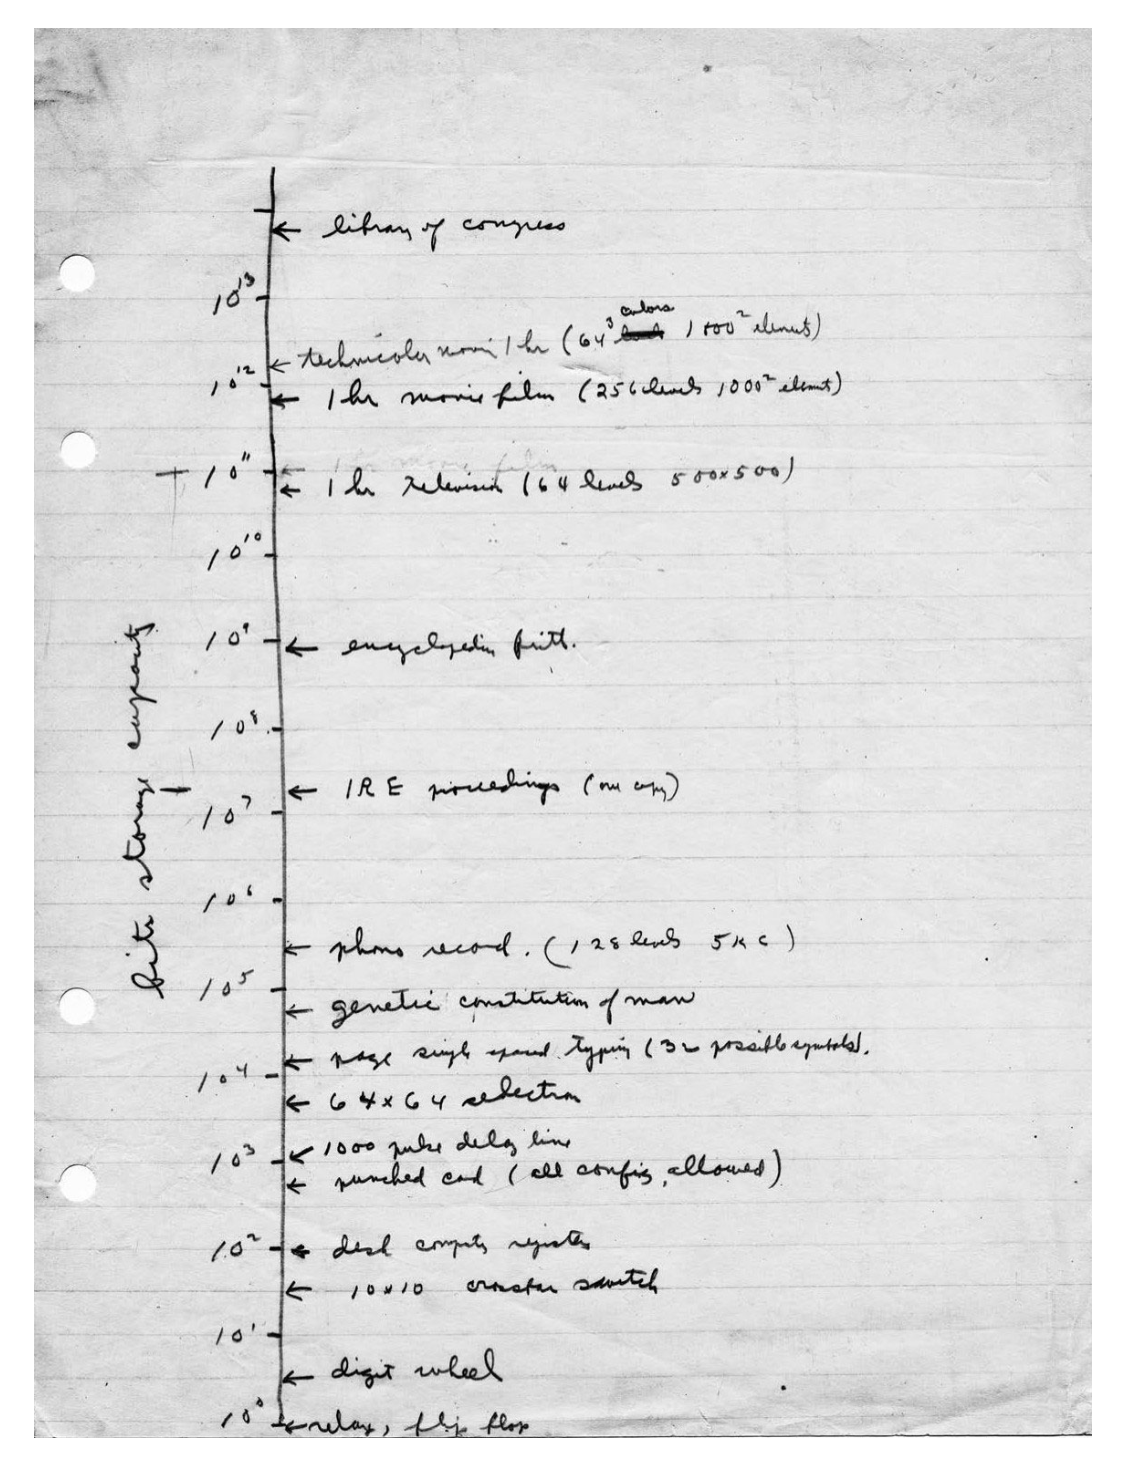 library of congress
10¹³
technicolor movie 1 hr (64³ colors 1000² elements)
10¹²
1 hr movie film (256 levels 1000² elements)
10¹¹
1 hr movie film
1 hr television (64 levels 500x500)
10¹⁰
10⁹
encyclopedia britt.
10⁸
IRE proceedings (one copy)
10⁷
bits storage capacity
10⁶
phono record. (128 levels 5KC)
10⁵
genetic constitution of man
page single spaced typing (32 possible symbols).
10⁴
64x64 selectron
1000 pulse delay line
10³
punched card (all config. allowed)
10²
desk computer register
10x10 crossbar switch
10¹
digit wheel
10⁰
relay, flip flop